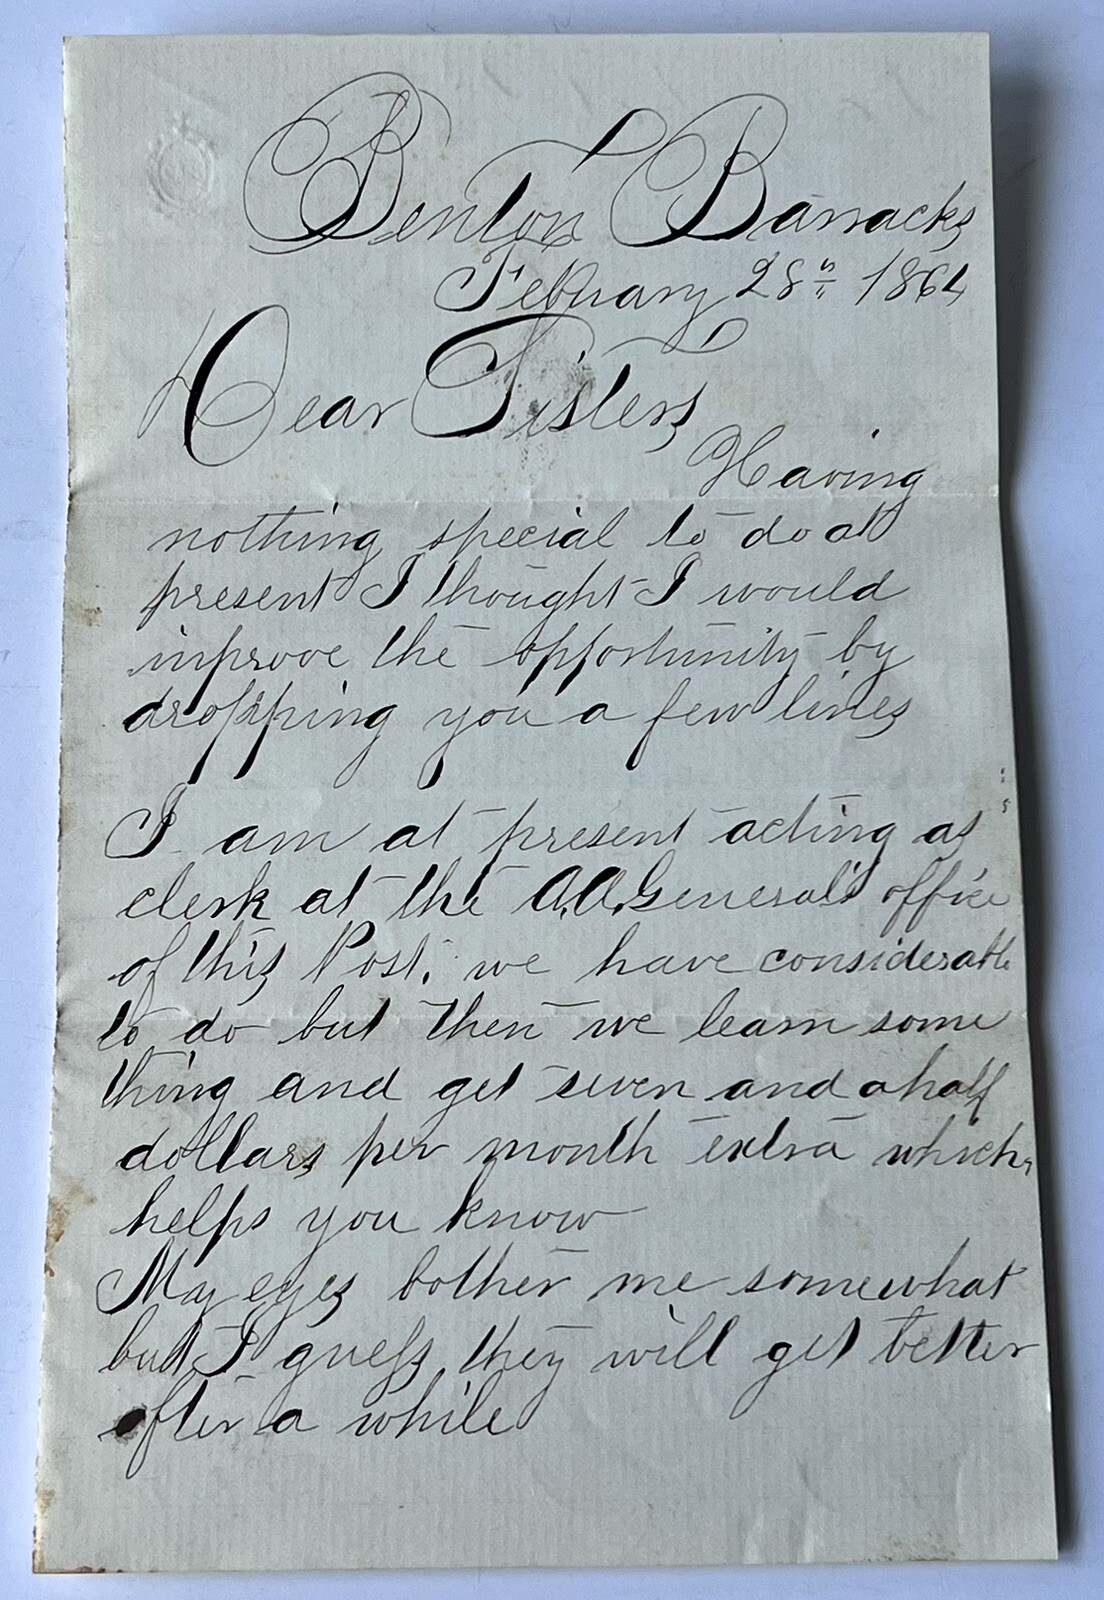 Benton Barracks
February 28th 1864
Dear Sisters
Having
nothing special to do at
present I thought I would
improve the opportunity by
dropping you a few lines
I am at present acting as
clerk at the A.A. General's office
of this Post. we have considerable
to do but then we learn some
thing and get seven and a half
dollars per month extra which
helps you know
My eyes bother me somewhat
but I guess they will get better
after a while